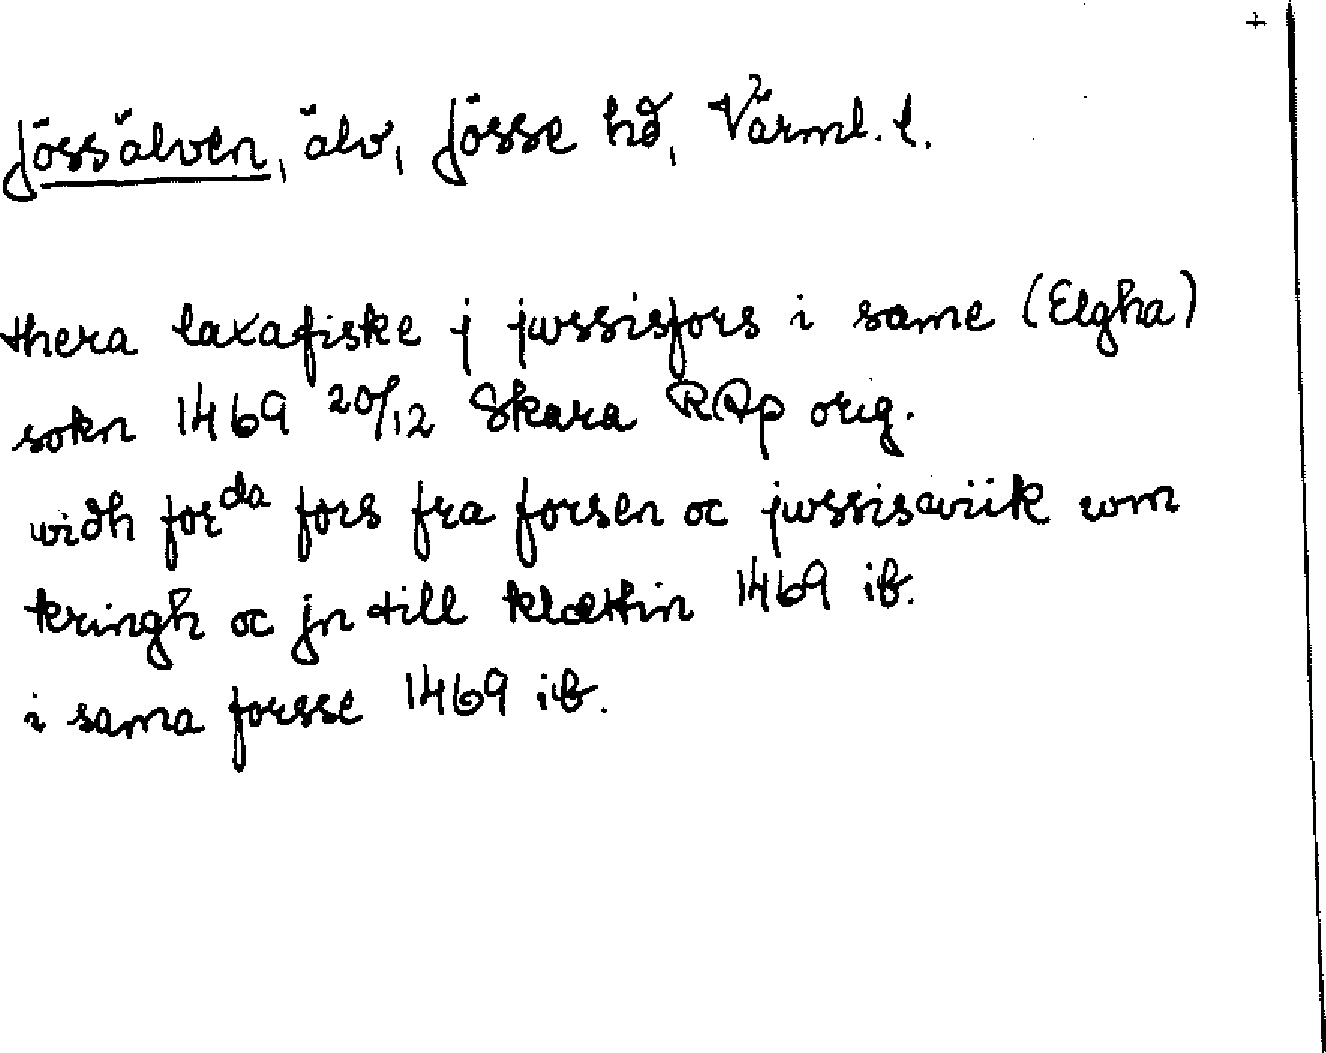 +
Jössälven, älv, Jösse hd, Värml. l.
thera laxafiske j jwssisfors i same (Elgha)
sokn 1469 20/12 Skara RAp orig.
widh forda fors fra forsen oc jwssisawiik wm
kringh oc jn till klættin 1469 ib.
i sama forsse 1469 ib.